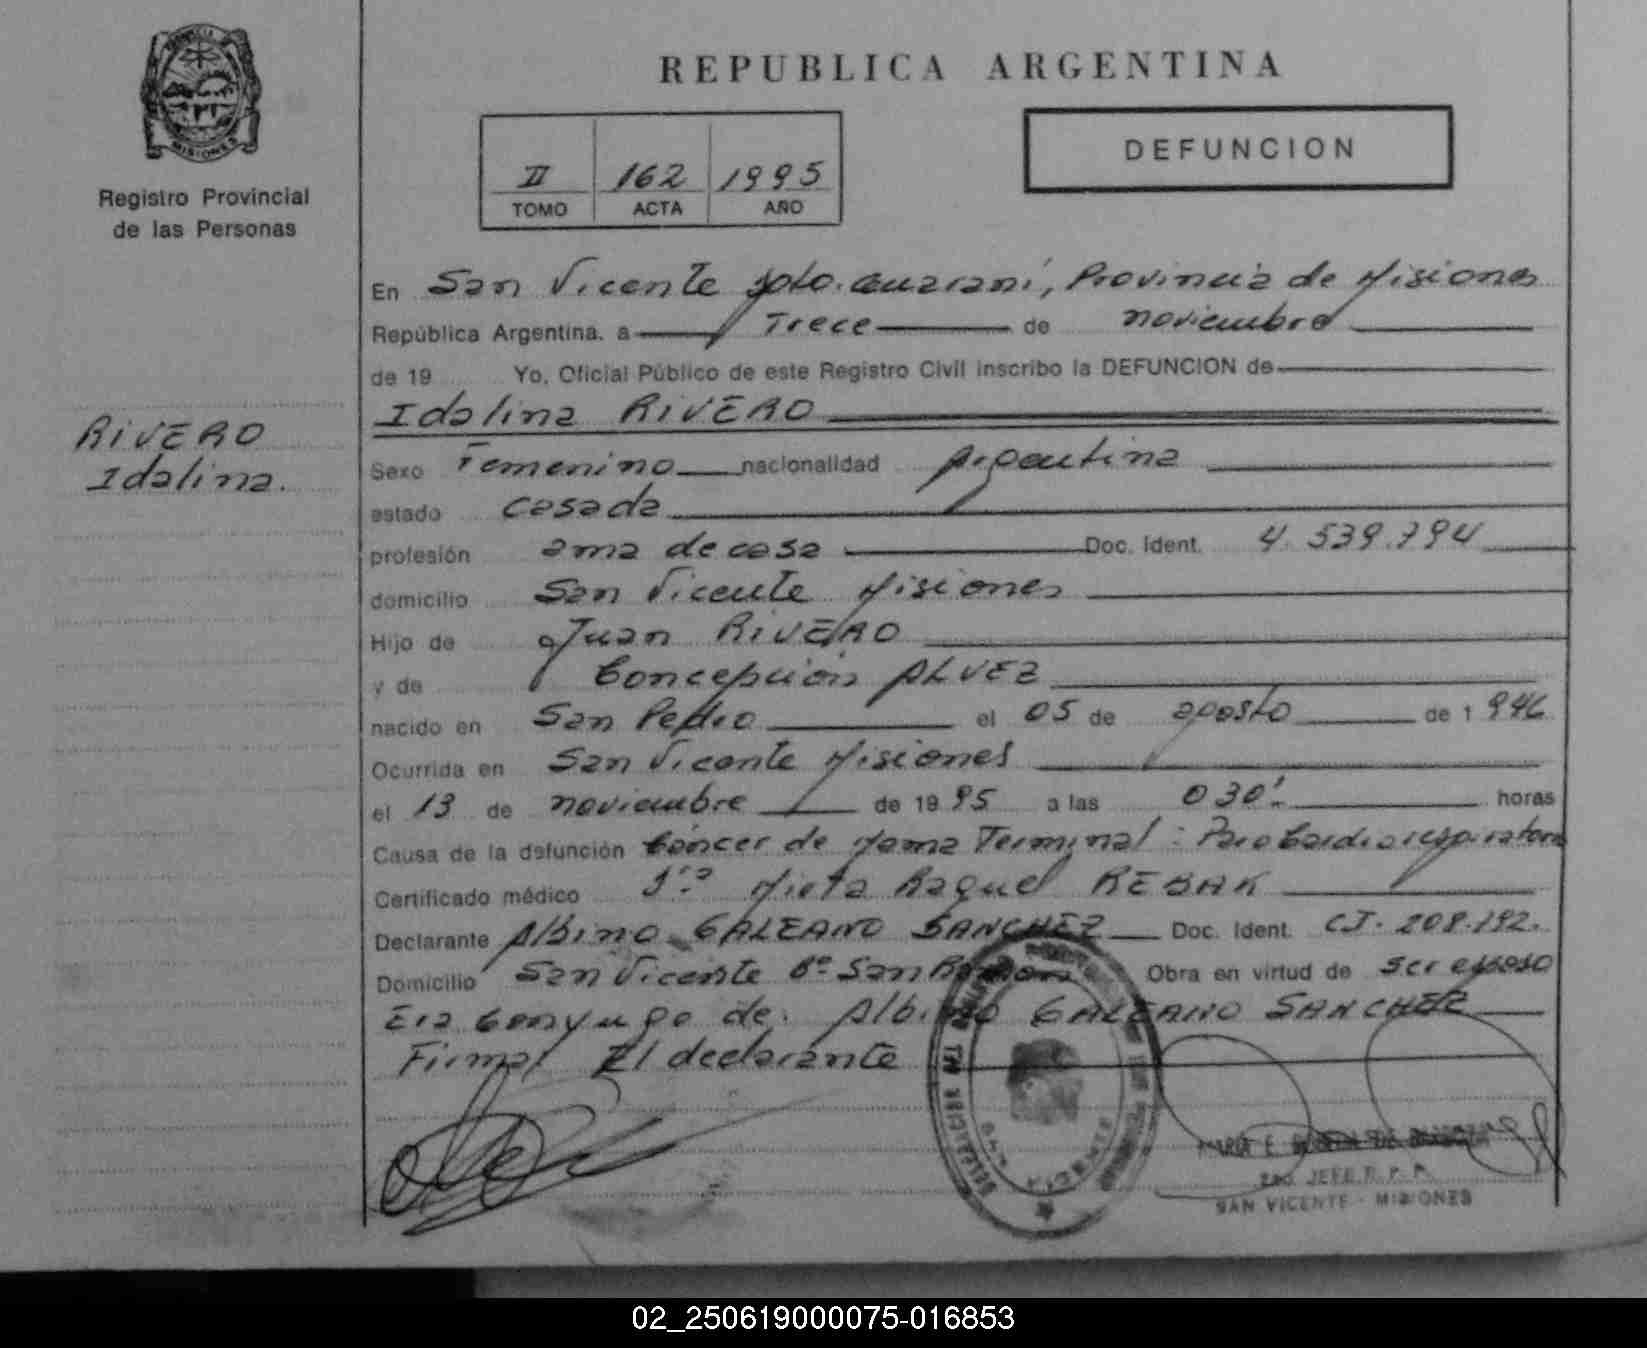 PROVINCIA DE
MISIONES
Registro Provincial
de las Personas
RIVERO
Idalina.
REPUBLICA ARGENTINA
II 162 1995
TOMO ACTA AÑO
DEFUNCION
En San Vicente Dpto. Guaraní, Provincia de Misiones
República Argentina, a Trece de noviembre
de 19 Yo, Oficial Público de este Registro Civil inscribo la DEFUNCION de
Idalina RIVERO
Sexo Femenino nacionalidad Argentina
estado casada
profesión ama de casa Doc. Ident. 4.539.794
domicilio San Vicente Misiones
Hijo de Juan RIVERO
y de Concepción ALVEZ
nacido en San Pedro el 05 de agosto de 1 946
Ocurrida en San Vicente Misiones
el 13 de noviembre de 19 95 a las 030'. horas
Causa de la defunción Cáncer de Mama Terminal: Paro Cardiorespiratorio
Certificado médico Dra Mirta Raquel
Declarante Albino GALEANO SANCHEZ Doc. Ident. CI. 208.192.
Domicilio San Vicente Bº San Ramon Obra en virtud de ser esposo
Era Conyuge de: Albino GALEANO SANCHEZ
Firma: El declarante
DELEGACION DEL
VICENTE
MARIA E.
2do. JEFE R. P. P.
SAN VICENTE - MISIONES
02_250619000075-016853